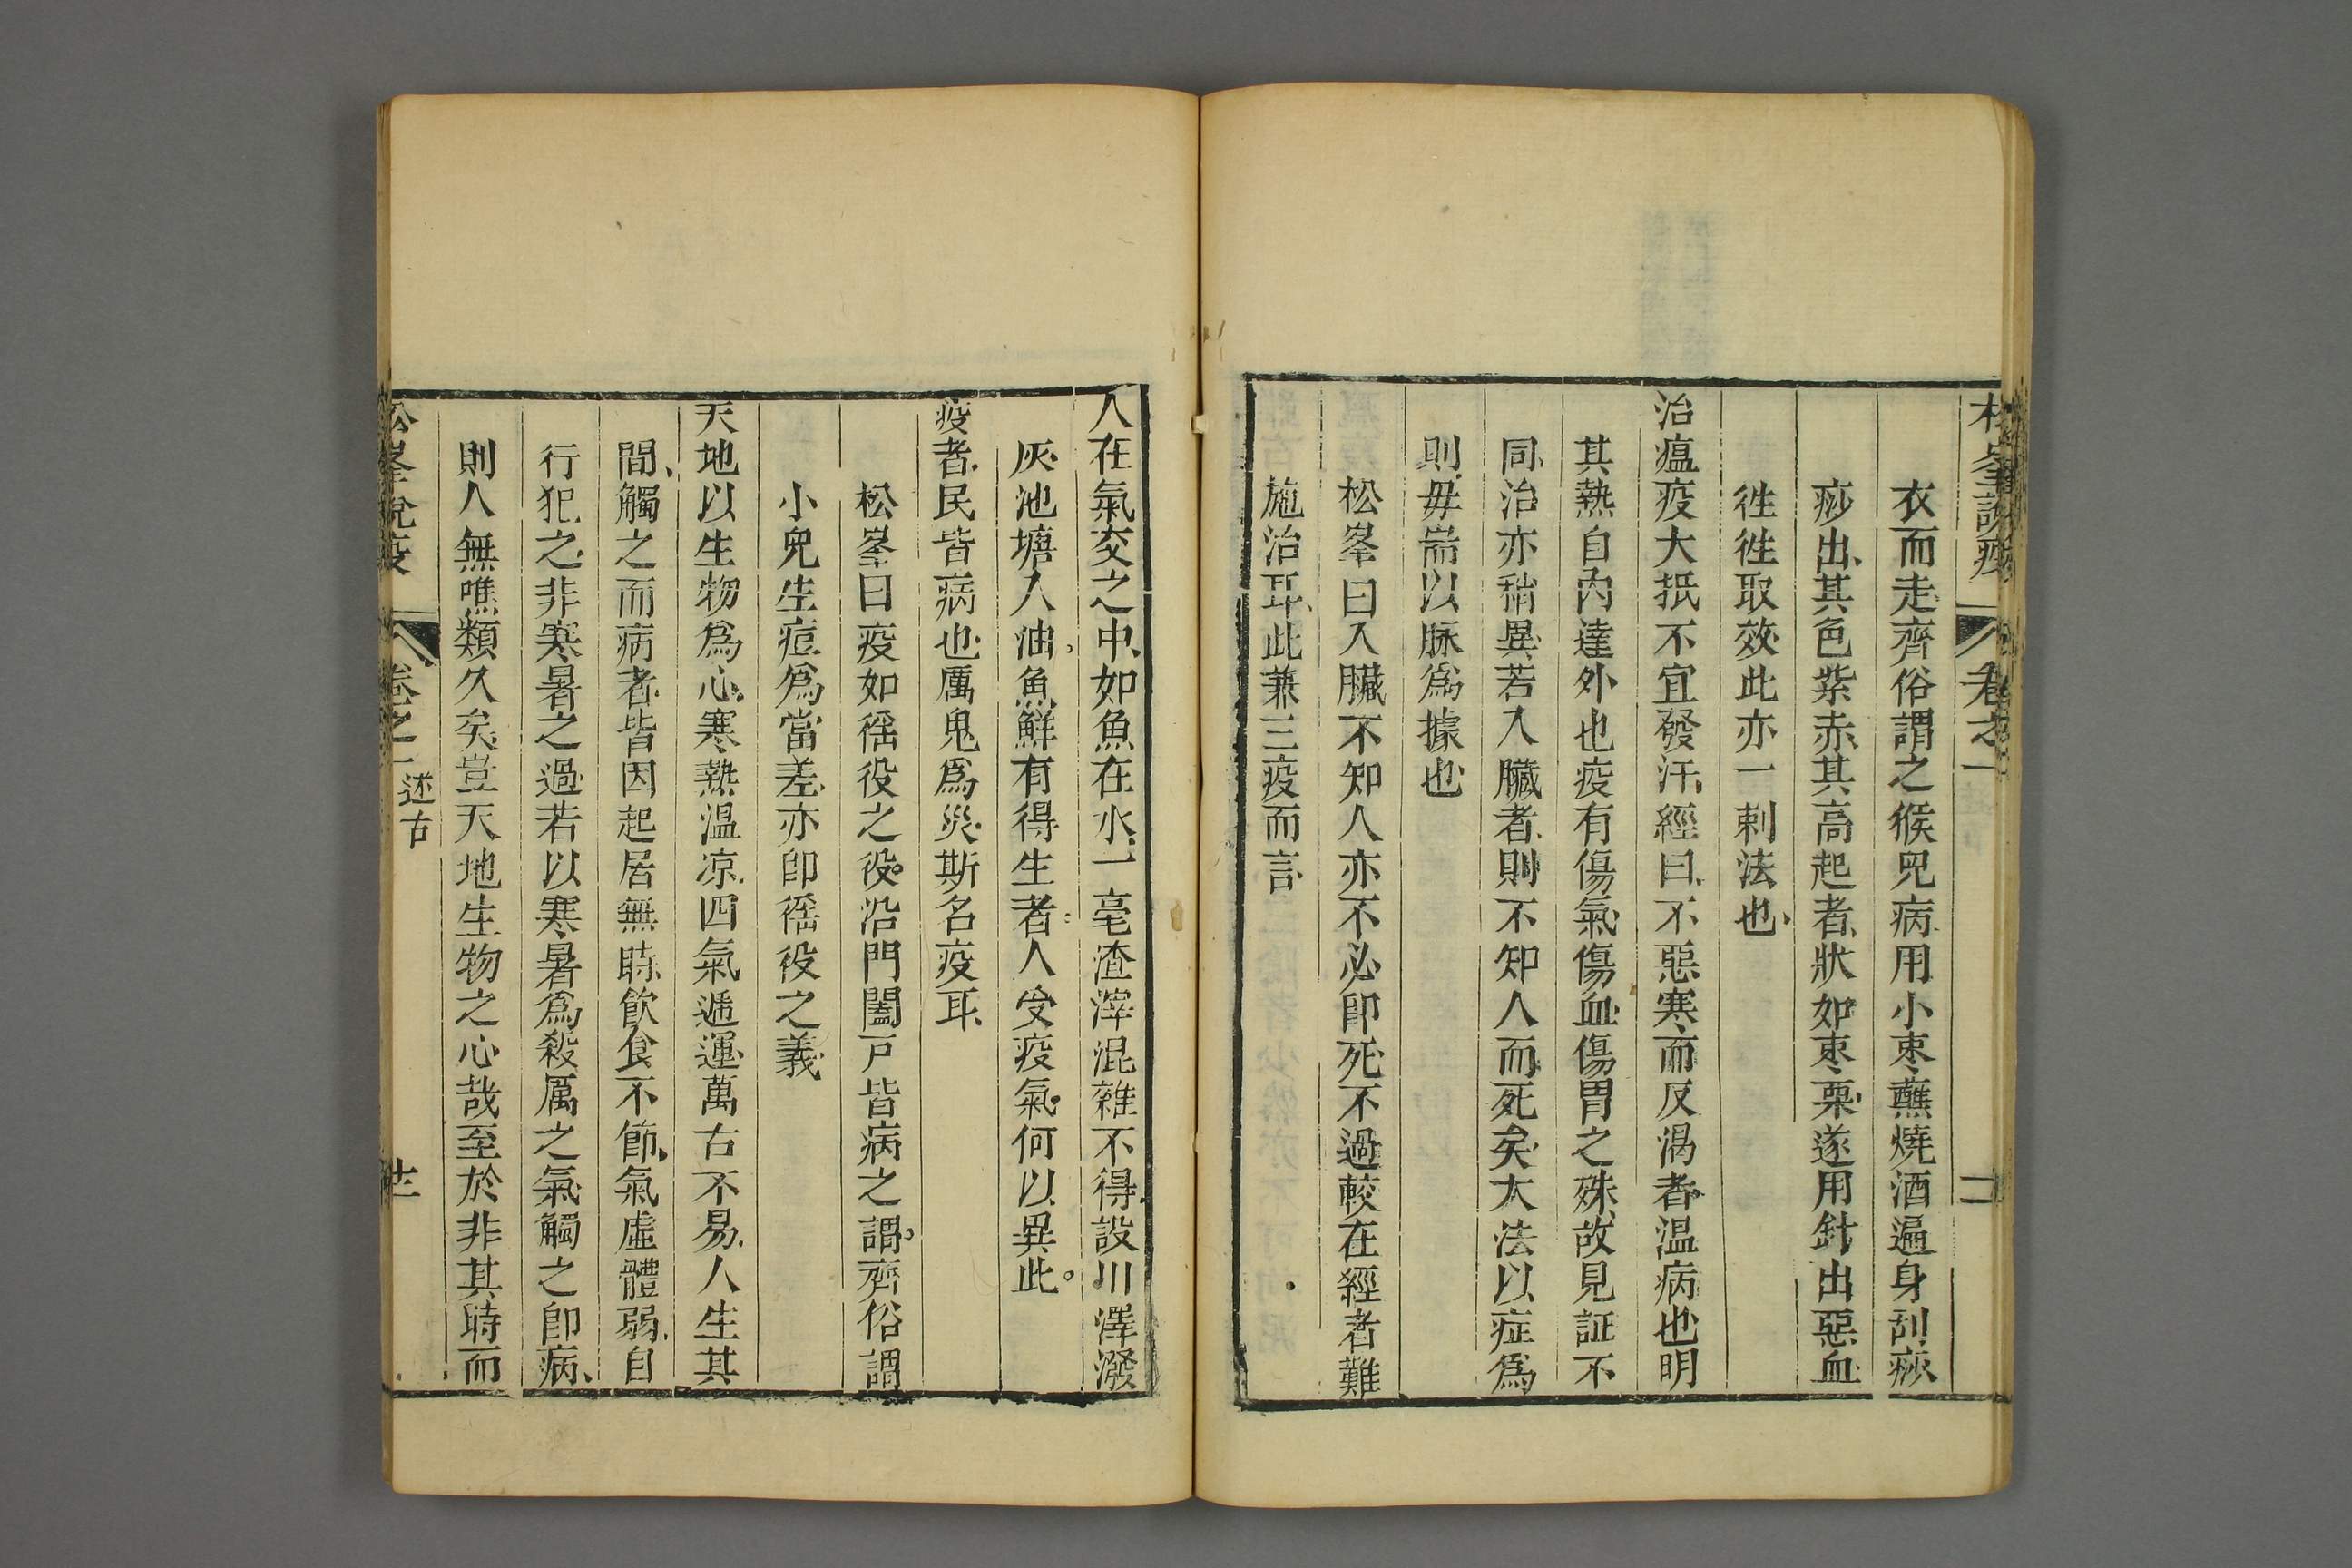 松峯說疫 卷之一 二
衣而走齊俗謂之猴兒病用小枣蘸燒酒遍身刮痧
痧出其色紫赤其高起者狀如枣栗遂用針出惡血
徃徃取效此亦一刺法也
治瘟疫大抵不宜發汗經曰不惡寒而反渴者温病也明
其熱自內達外也疫有傷氣傷血傷胃之殊故見証不
同治亦稍異若入臟者則不知人而死矣大法以症爲
則毋耑以脉爲據也
松峯曰入臟不知人亦不必卽死不過較在經者難
施治耳此兼三疫而言
人在氣交之中如魚在水一毫渣滓混雜不得設川澤潑
灰池塘入油魚鮮有得生者人受疫氣何以異此
疫者民皆病也厲鬼爲災斯名疫耳
松峯曰疫如徭役之役沿門闔戶皆病之謂齊俗謂
小兒生痘爲當差亦卽徭役之義
天地以生物爲心寒熱温凉四氣遞運萬古不易人生其
間觸之而病者皆因起居無時飲食不節氣虛體弱自
行犯之非寒暑之過若以寒暑爲殺厲之氣觸之卽病
則人無噍類久矣豈天地生物之心哉至於非其時而
松峯說疫 卷之一 述古